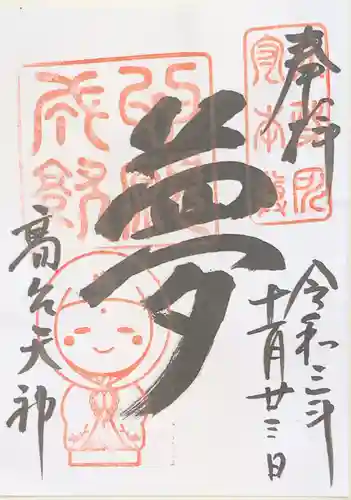 奉拝
令和三年
十一月廿三日
夢
高台天神